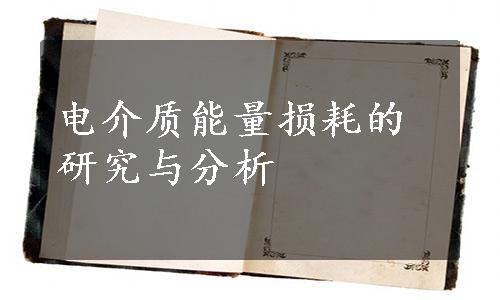 电介质能量损耗的
研究与分析